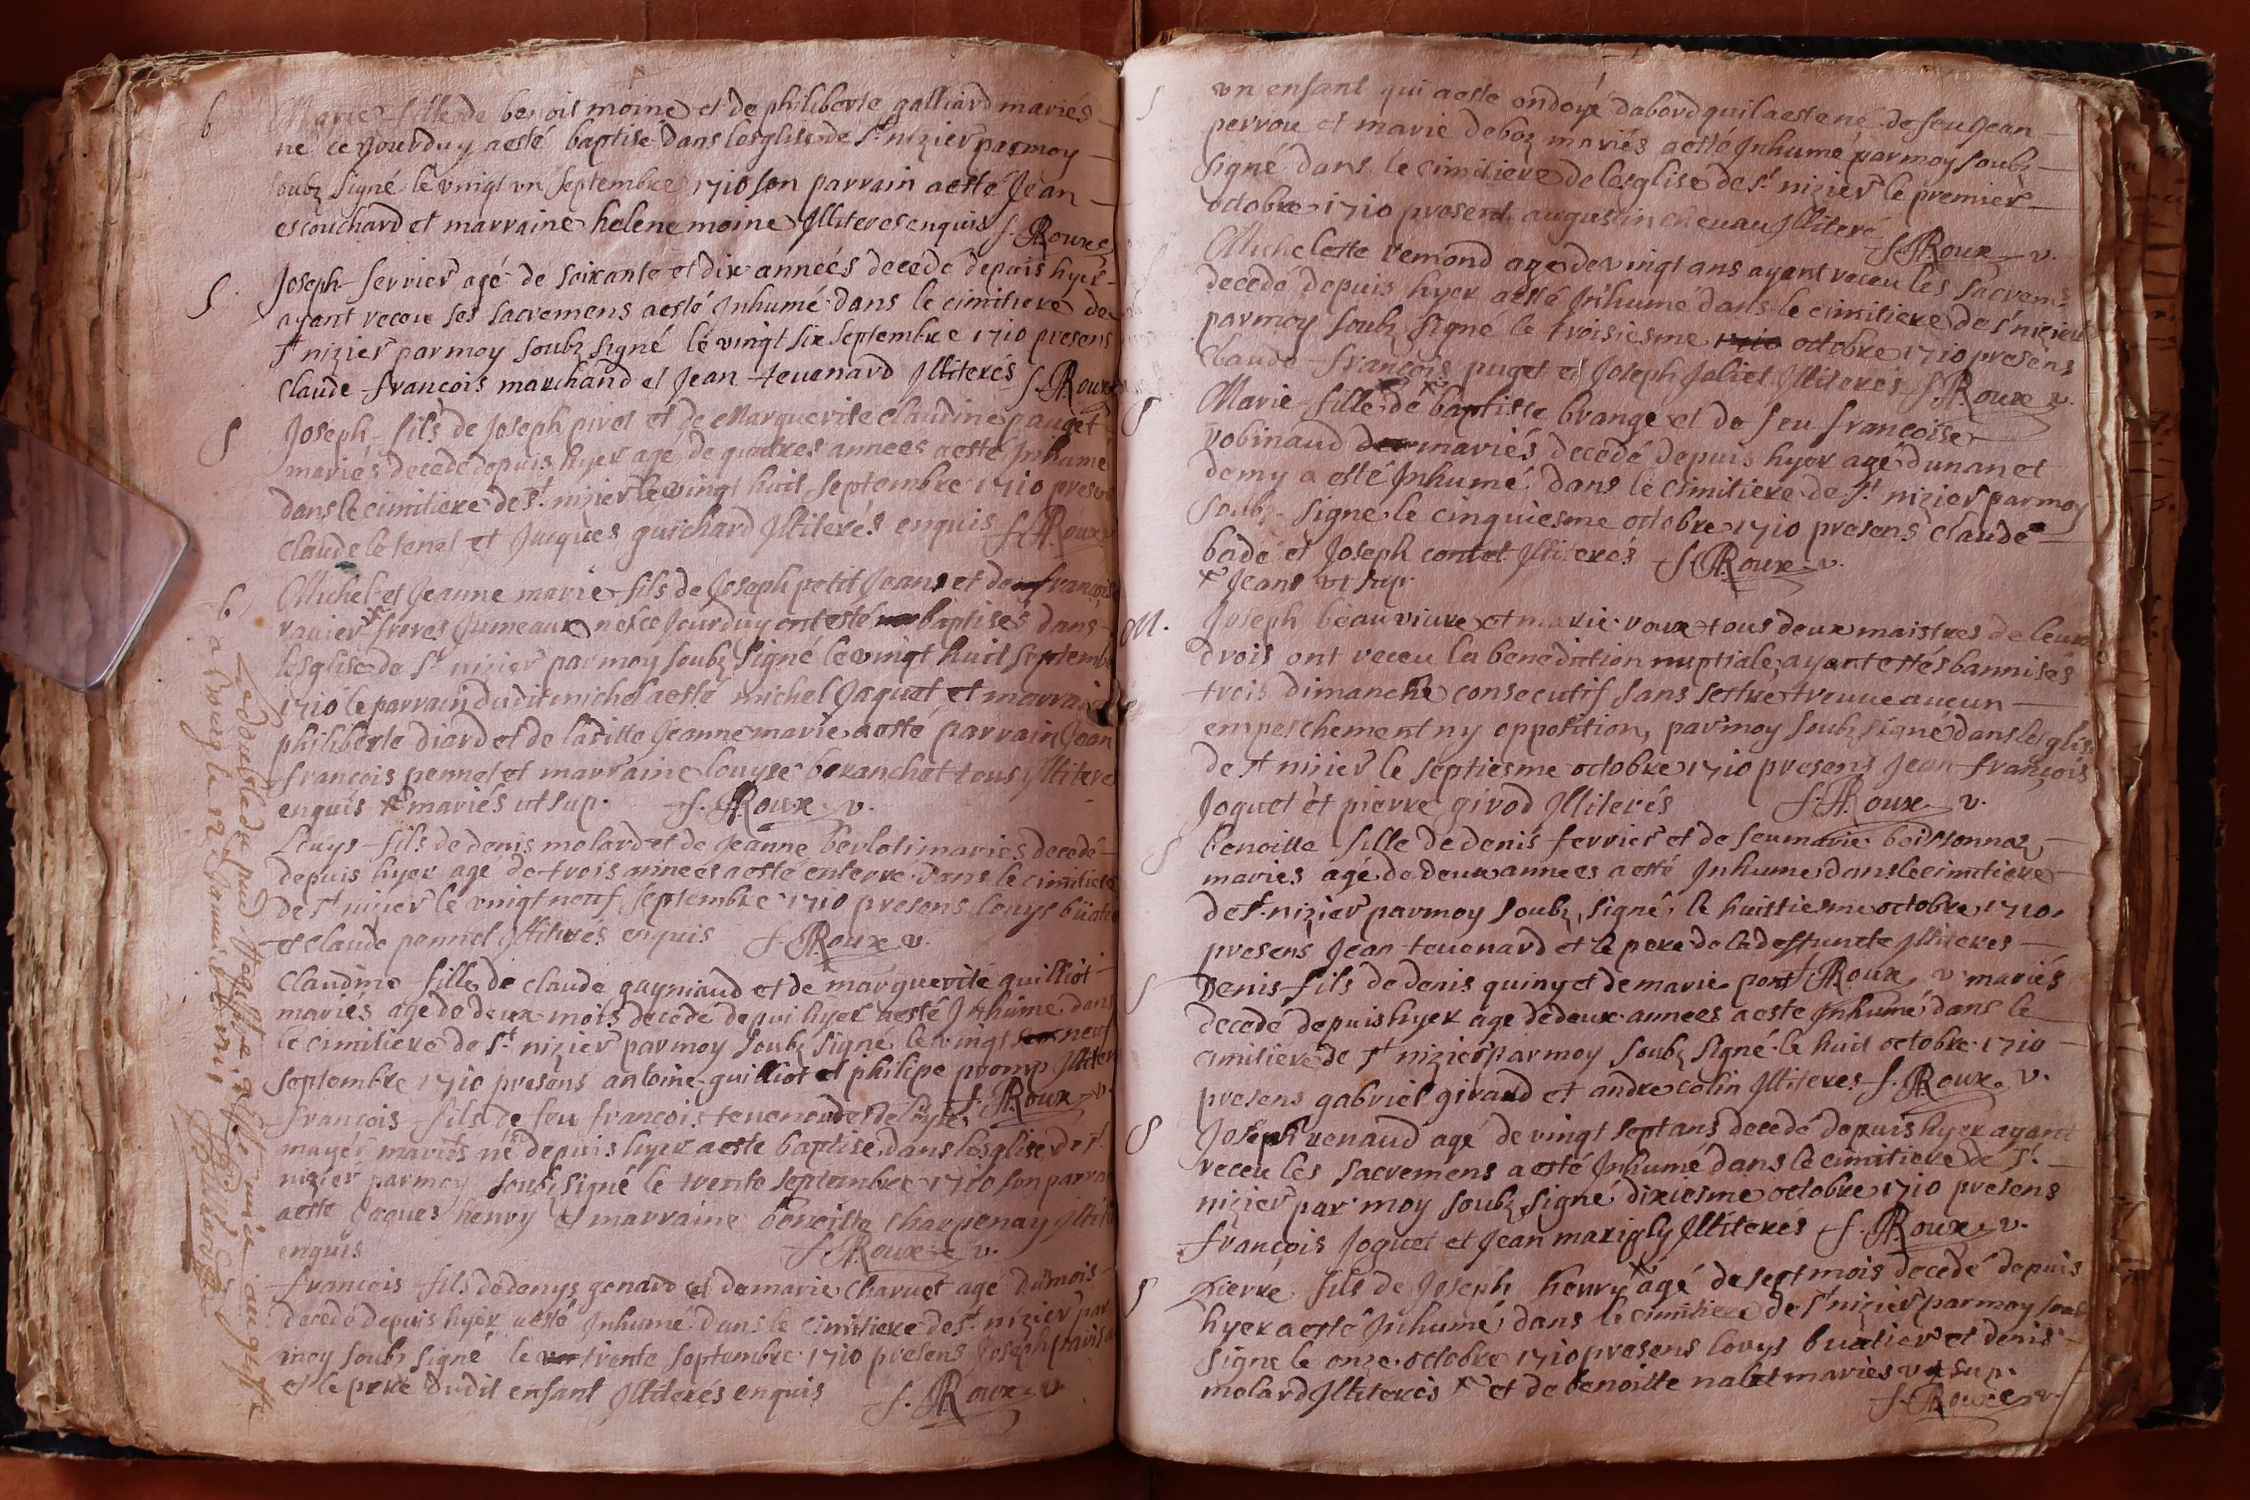 b
Marie fille de benoit moine et de philiberte galliard mariés
né ce jourduy a esté baptisé dans lesglise de St nizier par moy
soubz signé le vingt un septembre 1710 son parrain a esté Jean
escouchard et marraine helene moine Illiteres enquis f. Roux
S.
Joseph ferrier agé de soixante et dix années decedé depuis hyer
ayant receu ses sacremens a esté Inhumé dans le cimitiere de
St nizier par moy soubz signé le vingt six septembre 1710 presens
Claude françois marchand et Jean teuenard Illiterés f. Roux
S
Joseph fils de Joseph pivet et de Marguerite claudine pauget
mariés decedé depuis hyer agé de quatres annees a esté Inhumé
dans le cimitiere de St nizier le vingt huit septembre 1710 presens
Claude le tenet et Jacques guichard Illiterés enquis f. Roux
b
Michel et Jeanne marie fils de Joseph petit Jean et de françoise
ravier x freres Jumeaux nés ce Jourduy ont esté baptisés dans
lesglise de St nizier par moy soubz signé le vingt huit septembre
1710 le parrain dudit michel a esté michel Jaquet et marraine
philiberte diard et de laditte Jeanne marie a esté parrain Jean
françois pennet et marraine louyse beranchot tous Illiteré
enquis x mariés ut sup. f. Roux v.
Louys fils de denis molard et de Jeanne berloti mariés decedé
depuis hyer agé de trois années a esté enterré dans le cimitiere
de St nizier le vingt neuf septembre 1710 presens louys buatier
et claude pennet Illiterés enquis f. Roux v.
Claudine fille de claude guyniaud et de marguerite guilliot
mariés agé de deux mois decedé depui hyer a esté Inhumé dans
le cimitiere de St nizier par moy soubz signé le vingt neuf
septembre 1710 presens antoine guilliot et philipe promp Illiter
f. Roux v.
françois fils de feu françois teuenard et de
mayer mariés né depuis hyer a esté baptisé dans lesglise de St
nizier par moy soubz signé le trente septembre 1710 son parrain
a esté Jaques henry et marraine benoitte charpenay Illite
enquis f. Roux v.
françois fils de denys genard et de marie charuet agé du mois
decedé depuis hyer a esté Inhumé dans le cimitiere de St nizier par
moy soubz signé le trente septembre 1710 presens Joseph
et le pere dudit enfant Illiterés enquis f. Roux v.
a bourg le 12
S
un enfant qui a esté ondoyé dabord quil a esté né de feu Jean
perrou et marie deboz mariés a esté Inhumé par moy soubz
signé dans le cimitiere de lesglise de St nizier le premier
octobre 1710 present augustin cheuau Illiteré
f. Roux v.
Michelette remond agé de vingt ans ayant receu les sacrem.s
decedé depuis hyer a esté Inhumé dans le cimitiere de St nizier
par moy soubz signé le troisiesme octobre 1710 presens
Claude françois puget et Joseph Joliet Illiterés f. Roux v.
S
Marie fille de x baptiste brange et de feu françoise
robinaud mariés decedé depuis hyer agé dun an et
demy a esté Inhumé dans le cimitiere de St nizier par moy
soubz signé le cinquiesme octobre 1710 presens claude
badé et Joseph contet Illiterés f. Roux v.
x Jean ut sup.
M.
Joseph beauviure et marie roux tous deux maistres de leurs
drois ont receu la benediction nuptiale, ayant estés bannisés
trois dimanche consecutif sans sestre trouué aucun
empeschement ny opposition, par moy soubz signé dans lesglise
de St nizier le septiesme octobre 1710 presens Jean françois
Joquet et pierre girod Illiterés f. Roux v.
S
benoitte fille de denis ferrier et de feu marie boissonnaz
mariés agé de deux annees a esté Inhumé dans le cimitiere
de St nizier par moy soubz signé le huittiesme octobre 1710
presens Jean teuenard et le pere de la deffuncte Illiteres
S
Denis fils de denis quiny et de marie pont f. Roux v mariés
decedé depuis hyer agé de deux annees a esté Inhumé dans le
cimitiere de St nizier par moy soubz signé le huit octobre 1710
presens gabriel girard et andre colin Illiteres f. Roux v.
S
Joseph renaud agé de vingt sept ans decedé depuis hyer ayant
receu les sacremens a esté Inhumé dans le cimitiere de St
nizier par moy soubz signé dixiesme octobre 1710 presens
françois Joquet et Jean marigly Illiterés f. Roux v.
S
Pierre fils de Joseph henry x agé de sept mois decedé depuis
hyer a esté Inhumé dans le cimitiere de St nizier par moy soub
signé le onze octobre 1710 presens louys buatier et denis
molard Illiterés x et de benoitte nalet mariés ut sup.
f. Roux v.